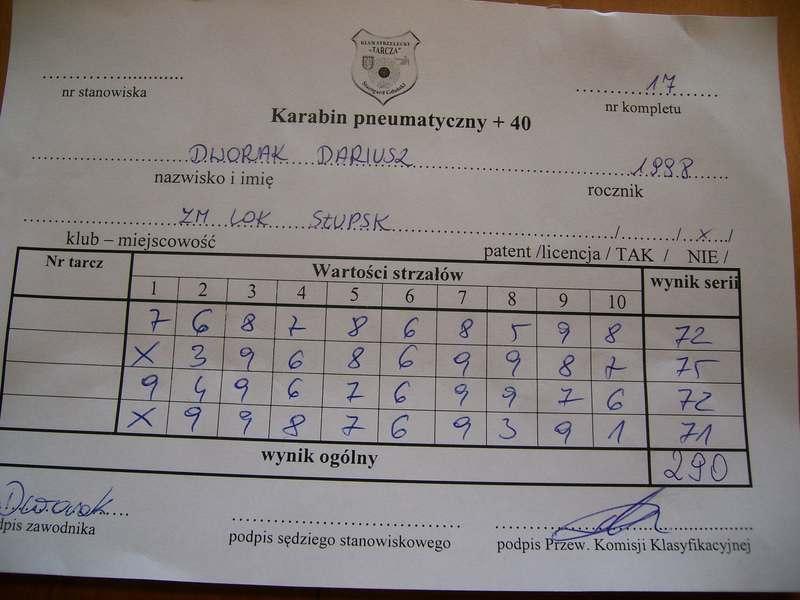 KLUB STRZELECKI
"TARCZA"
Starogard Gdański
17
nr stanowiska
nr kompletu
Karabin pneumatyczny + 40
DWORAK DARIUSZ 1988
nazwisko i imię rocznik
ZM LOK SŁUPSK / / x /
klub – miejscowość patent /licencja / TAK / NIE /
Nr tarcz Wartości strzałów wynik serii
1 2 3 4 5 6 7 8 9 10
7 6 8 7 8 6 8 5 9 8 72
X 3 9 6 8 6 9 9 8 7 75
9 4 9 6 7 6 9 9 7 6 72
X 9 9 8 7 6 9 3 9 1 71
wynik ogólny 290
Dworak
dpis zawodnika
podpis sędziego stanowiskowego
podpis Przew. Komisji Klasyfikacyjnej